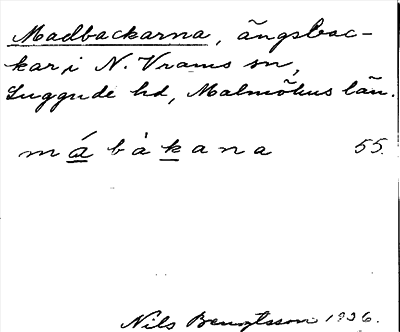 Madbackarna, ängsbac-
kar i N. Vrams sn,
Luggude hd, Malmöhus län.
mábàkana 55.
Nils Bengtsson 1936.